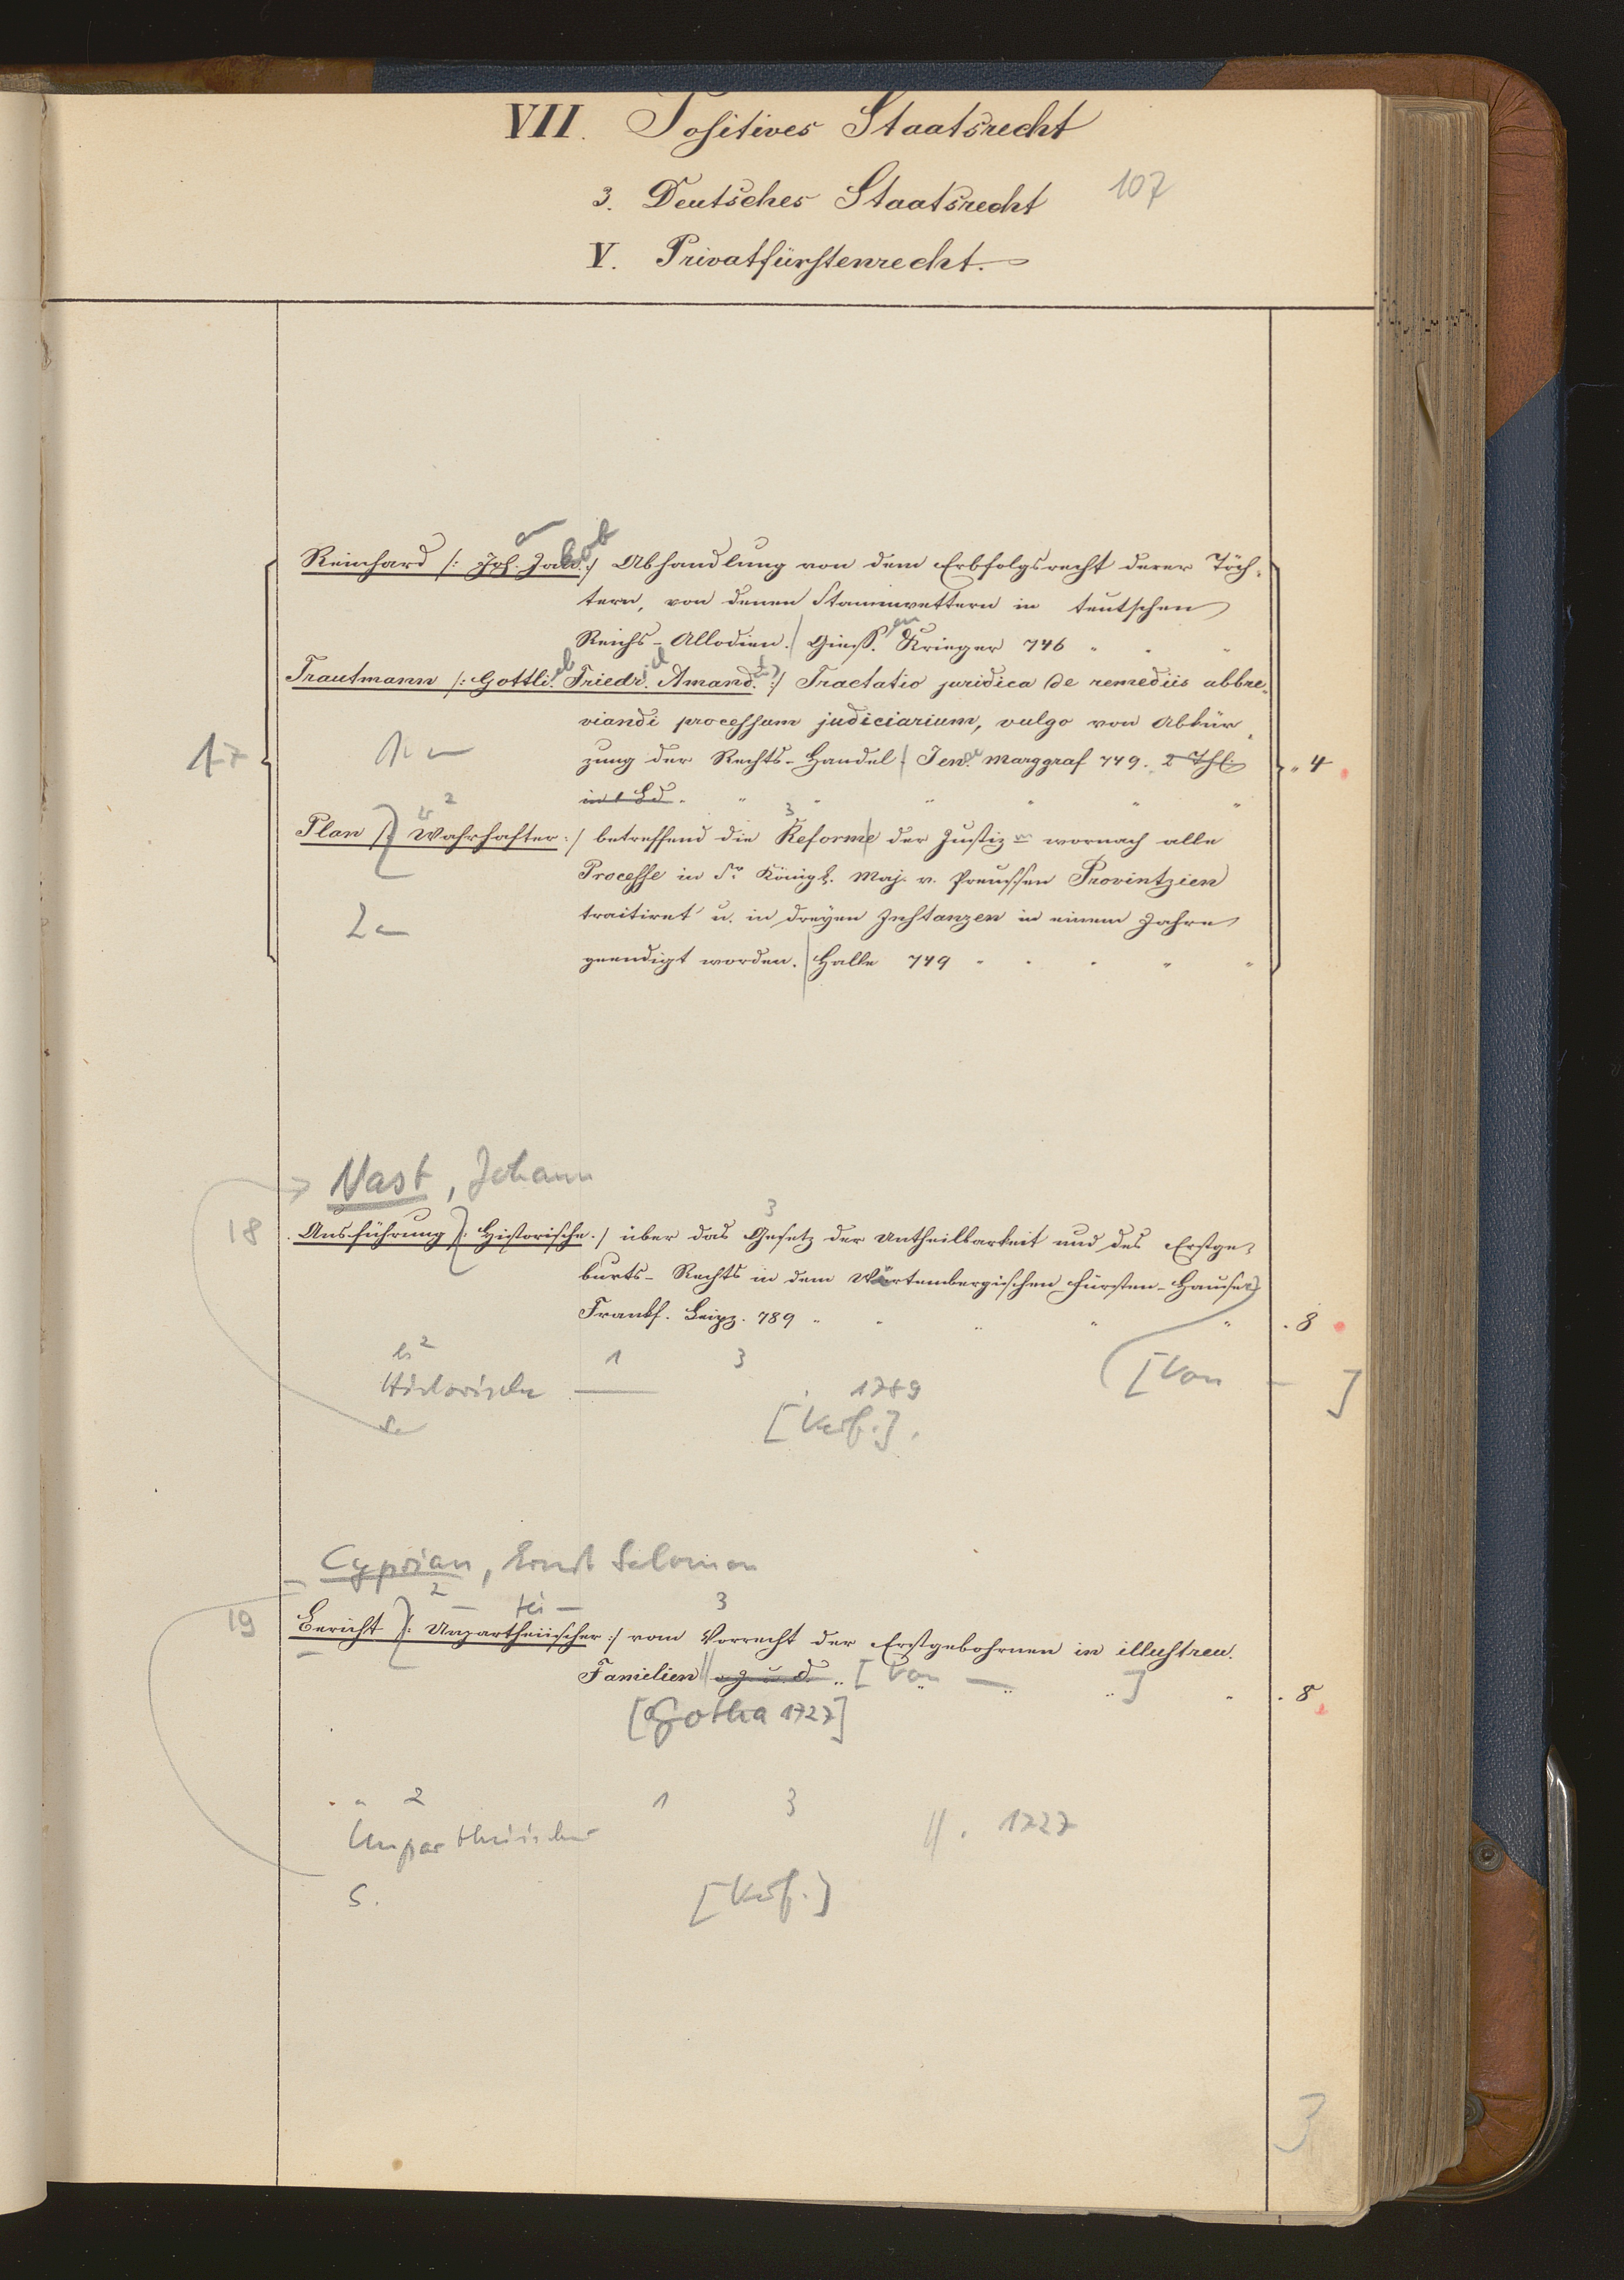 VII. Positives Staatsrecht
3. Deutsches Staatsrecht 107
V. Privatfürstenrecht.
Reinhard /: Joh. Jakob :/ Abhandlung von dem Erbfolgsrecht derer Töch-
tern, von denen Stammvettern in teutschen
Reichs-Allodien. / Giess.en Krieger 746 " " "
Trautmann /: Gottlieb. Friedr. Amand. :/ Tractatio juridica de remediis abbre-
viandi processum judiciarium, vulgo von Abkür-
17
1
zung der Rechts-Handel / Jen. Marggraf 749. 2 Thl. " 4
in 1 Bd. " " " " " "
2 3
Plan /: Wahrhafter :/ betreffend die Reforme der Justiz wornach alle
Processe in Sr Königl. Maj. v. Preussen Provintzien
2
traitiret u. in dreyen Instanzen in einem Jahre
geendigt worden. / Halle 749 " " " " "
Nast, Johann
18
3
Ausführung /: Historische :/ über das Gesetz der Untheilbarkeit und des Erstge-
burts-Rechts in dem Würtembergischen Fürsten-Hause
Frankf. Leipz. 789 " " " " " . 8
2 1 3
Historische — . 1789 [Von — ]
[Verf.].
Cyprian, Ernst Salomon
19
2 — tei — 3
Bericht /: Unpartheiischer :/ vom Vorrecht der Erstgebohrnen in illustren.
Familien // [Von — ] " . 8
[Gotha 1727]
" 2 1 3
Unpartheiischer // . 1727
S. [Verf.]
3